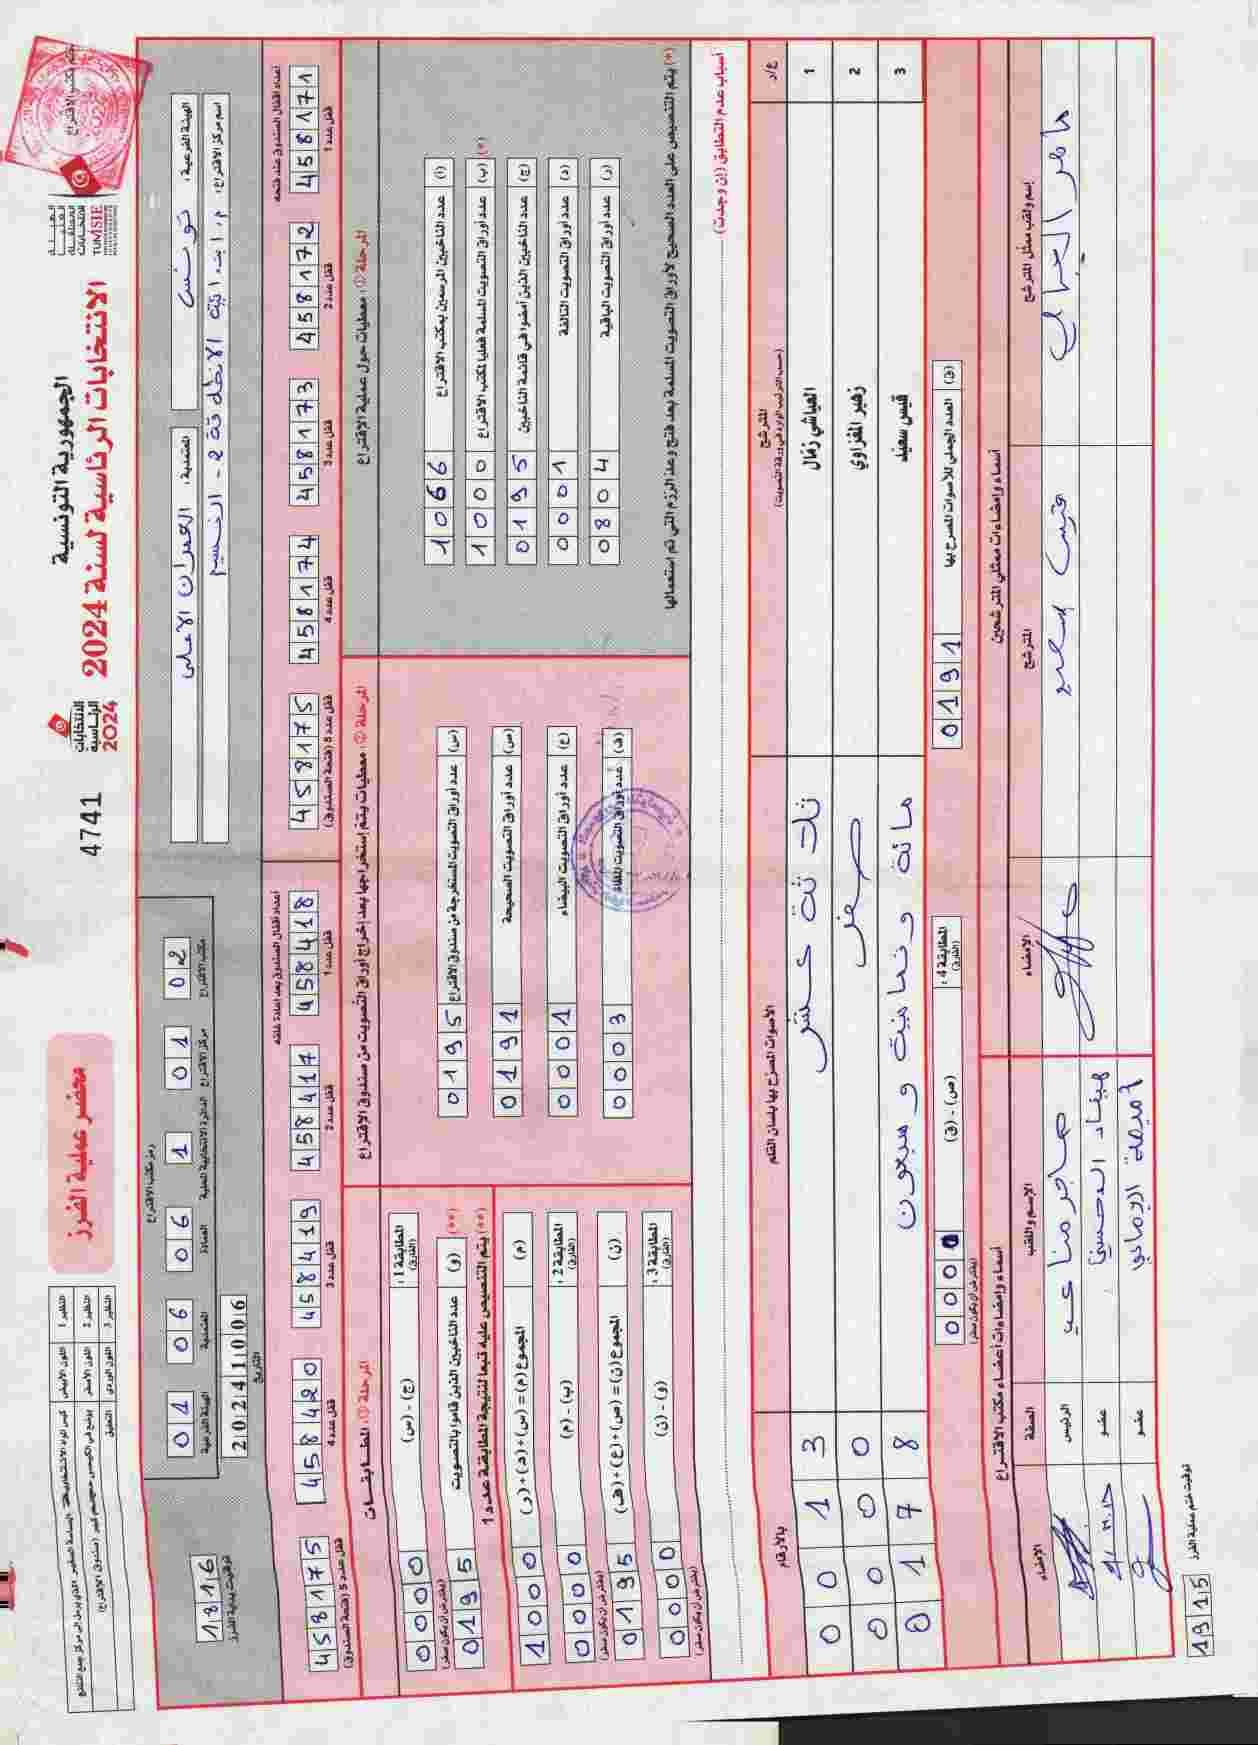 الجمهورية التونسية
الانتخابات الرئاسية لسنة 2024
الهيئة
العليا
المستقلة
للانتخابات
TUNISIE
ختم مكتب الاقتراع
الانتخابات
الرئاسية
2024
4741
محضر عملية الفرز
النظير 1 اللون الأبيض
النظير 2 اللون الأصفر
النظير 3 اللون الوردي التعليق
الهيئة الفرعية: تونس
المعتمدية: العمران الأعلى
اسم مركز الاقتراع:
رمز مكتب الاقتراع
مكتب الاقتراع 02
مركز الاقتراع 01
الدائرة الانتخابية المحلية 1
العمادة 06
المعتمدية 06
الهيئة الفرعية 01
التاريخ 20241006
توقيت بداية الفرز 1816
أعداد أقفال الصندوق عند فتحه
458171 قفل عدد 1
458172 قفل عدد 2
458173 قفل عدد 3
458174 قفل عدد 4
458175 قفل عدد 5 (فتحة الصندوق)
أعداد أقفال الصندوق بعد إعادة غلقه
458418 قفل عدد 1
458417 قفل عدد 2
458419 قفل عدد 3
458420 قفل عدد 4
458175 قفل عدد 5 (فتحة الصندوق)
المرحلة ①: معطيات حول عملية الاقتراع
(أ) عدد الناخبين المرسمين بمكتب الاقتراع 1066
(ب) (*) عدد أوراق التصويت المسلمة فعليا لمكتب الاقتراع 1000
(ج) عدد الناخبين الذين أمضوا في قائمة الناخبين 0195
(د) عدد أوراق التصويت التالفة 0001
(ر) عدد أوراق التصويت الباقية 0804
(*) يتم التنصيص على العدد الصحيح لأوراق التصويت المسلمة بعد فتح وعد الرزم التي تم استعمالها
المرحلة ②: معطيات يتم استخراجها بعد إخراج أوراق التصويت من صندوق الاقتراع
(س) عدد أوراق التصويت المستخرجة من صندوق الاقتراع 0195
(ص) عدد أوراق التصويت الصحيحة 0191
(ع) عدد أوراق التصويت البيضاء 0001
(ف) عدد أوراق التصويت الملغاة 0003
المرحلة ③: المطابقات
المطابقة 1: (الفارق) (ج) - (س) 0000
(يفترض أن يكون صفر)
(**) (و) عدد الناخبين الذين قاموا بالتصويت 0195
(**) يتم التنصيص عليه تبعا لنتيجة المطابقة عدد 1
(م) المجموع (م) = (س) + (د) + (ر) 1000
المطابقة 2: (الفارق) (ب) - (م) 0000
(يفترض أن يكون صفر)
(ن) المجموع (ن) = (ص) + (ع) + (ف) 0195
المطابقة 3: (الفارق) (و) - (ن) 0000
(يفترض أن يكون صفر)
أسباب عدم التطابق (إن وجدت):
ع/د المترشح الأصوات المصرّح بها بلسان القلم بالأرقام
(حسب الترتيب الوارد في ورقة التصويت)
1 العياشي زمال ثلاثة عشر 0013
2 زهير المغزاوي صفر 0000
3 قيس سعيد مائة وثمانية وسبعون 0178
(ق) العدد الجملي للأصوات المصرح بها 0191
المطابقة 4: (الفارق) (ص) - (ق) 0000
(يفترض أن يكون صفر)
أسماء وإمضاءات ممثلي المترشحين
إسم ولقب ممثل المترشح المترشح الإمضاء
قيس سعيد
أسماء وإمضاءات أعضاء مكتب الاقتراع
الإسم واللقب الصفة الإمضاء
الرئيس
عضو
عضو
توقيت ختم عملية الفرز 1915